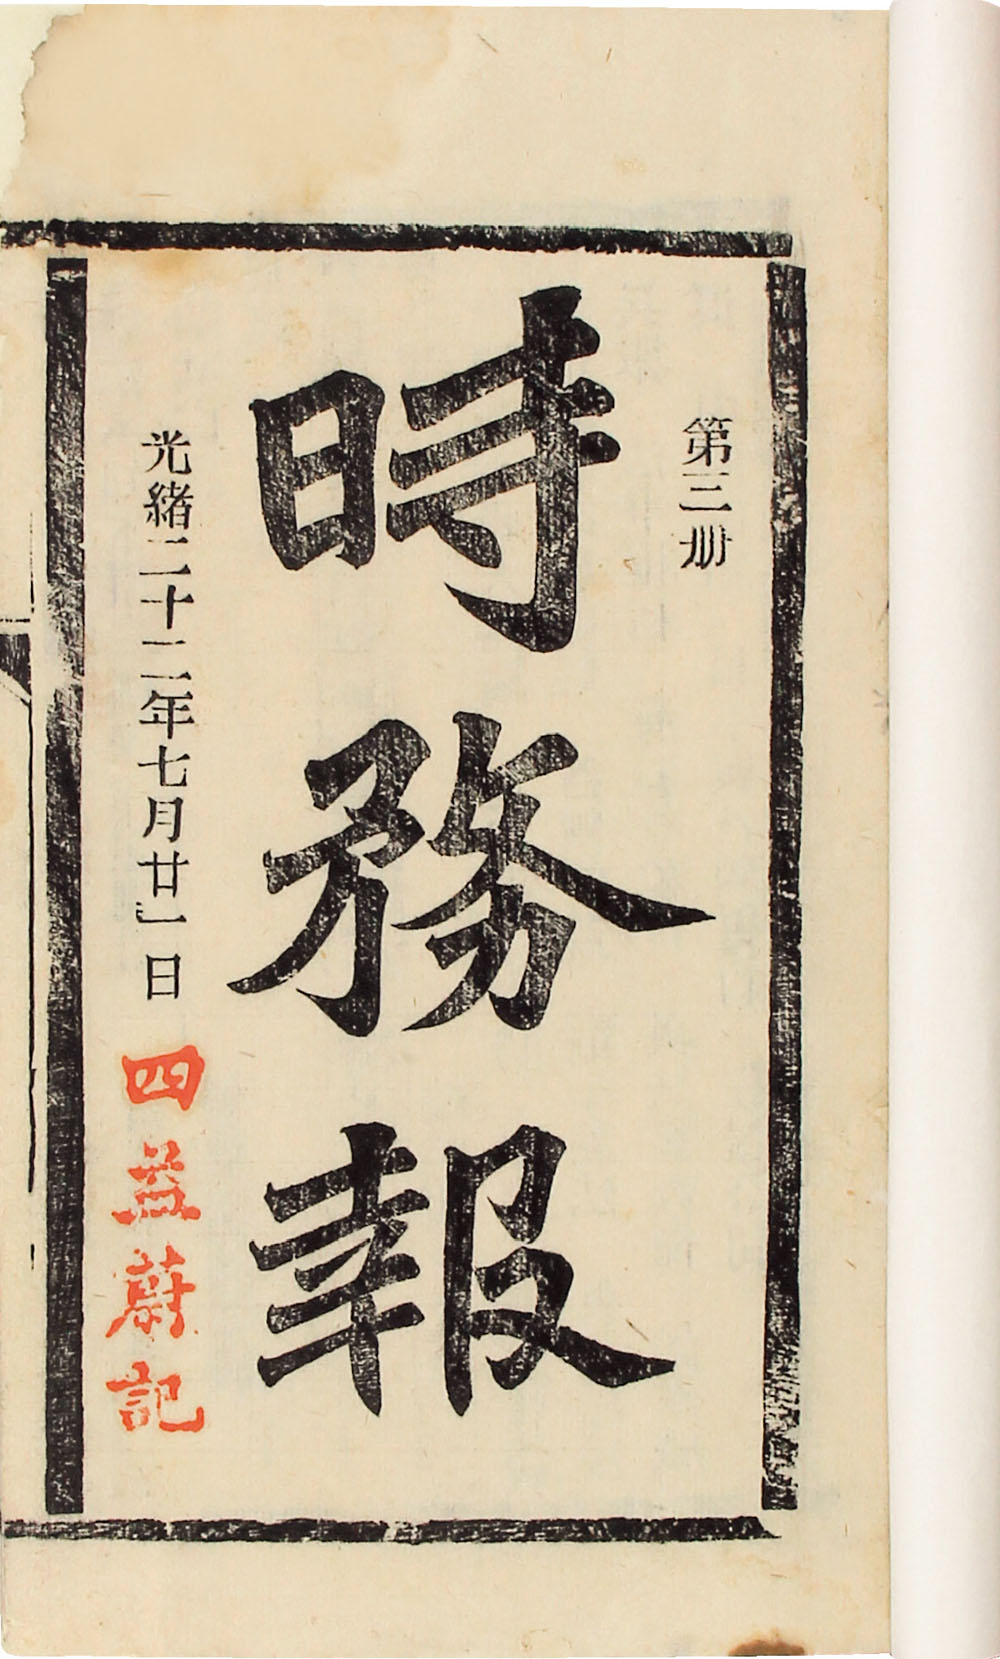 第三册
時務報
光緒二十二年七月廿一日
四益蔚記